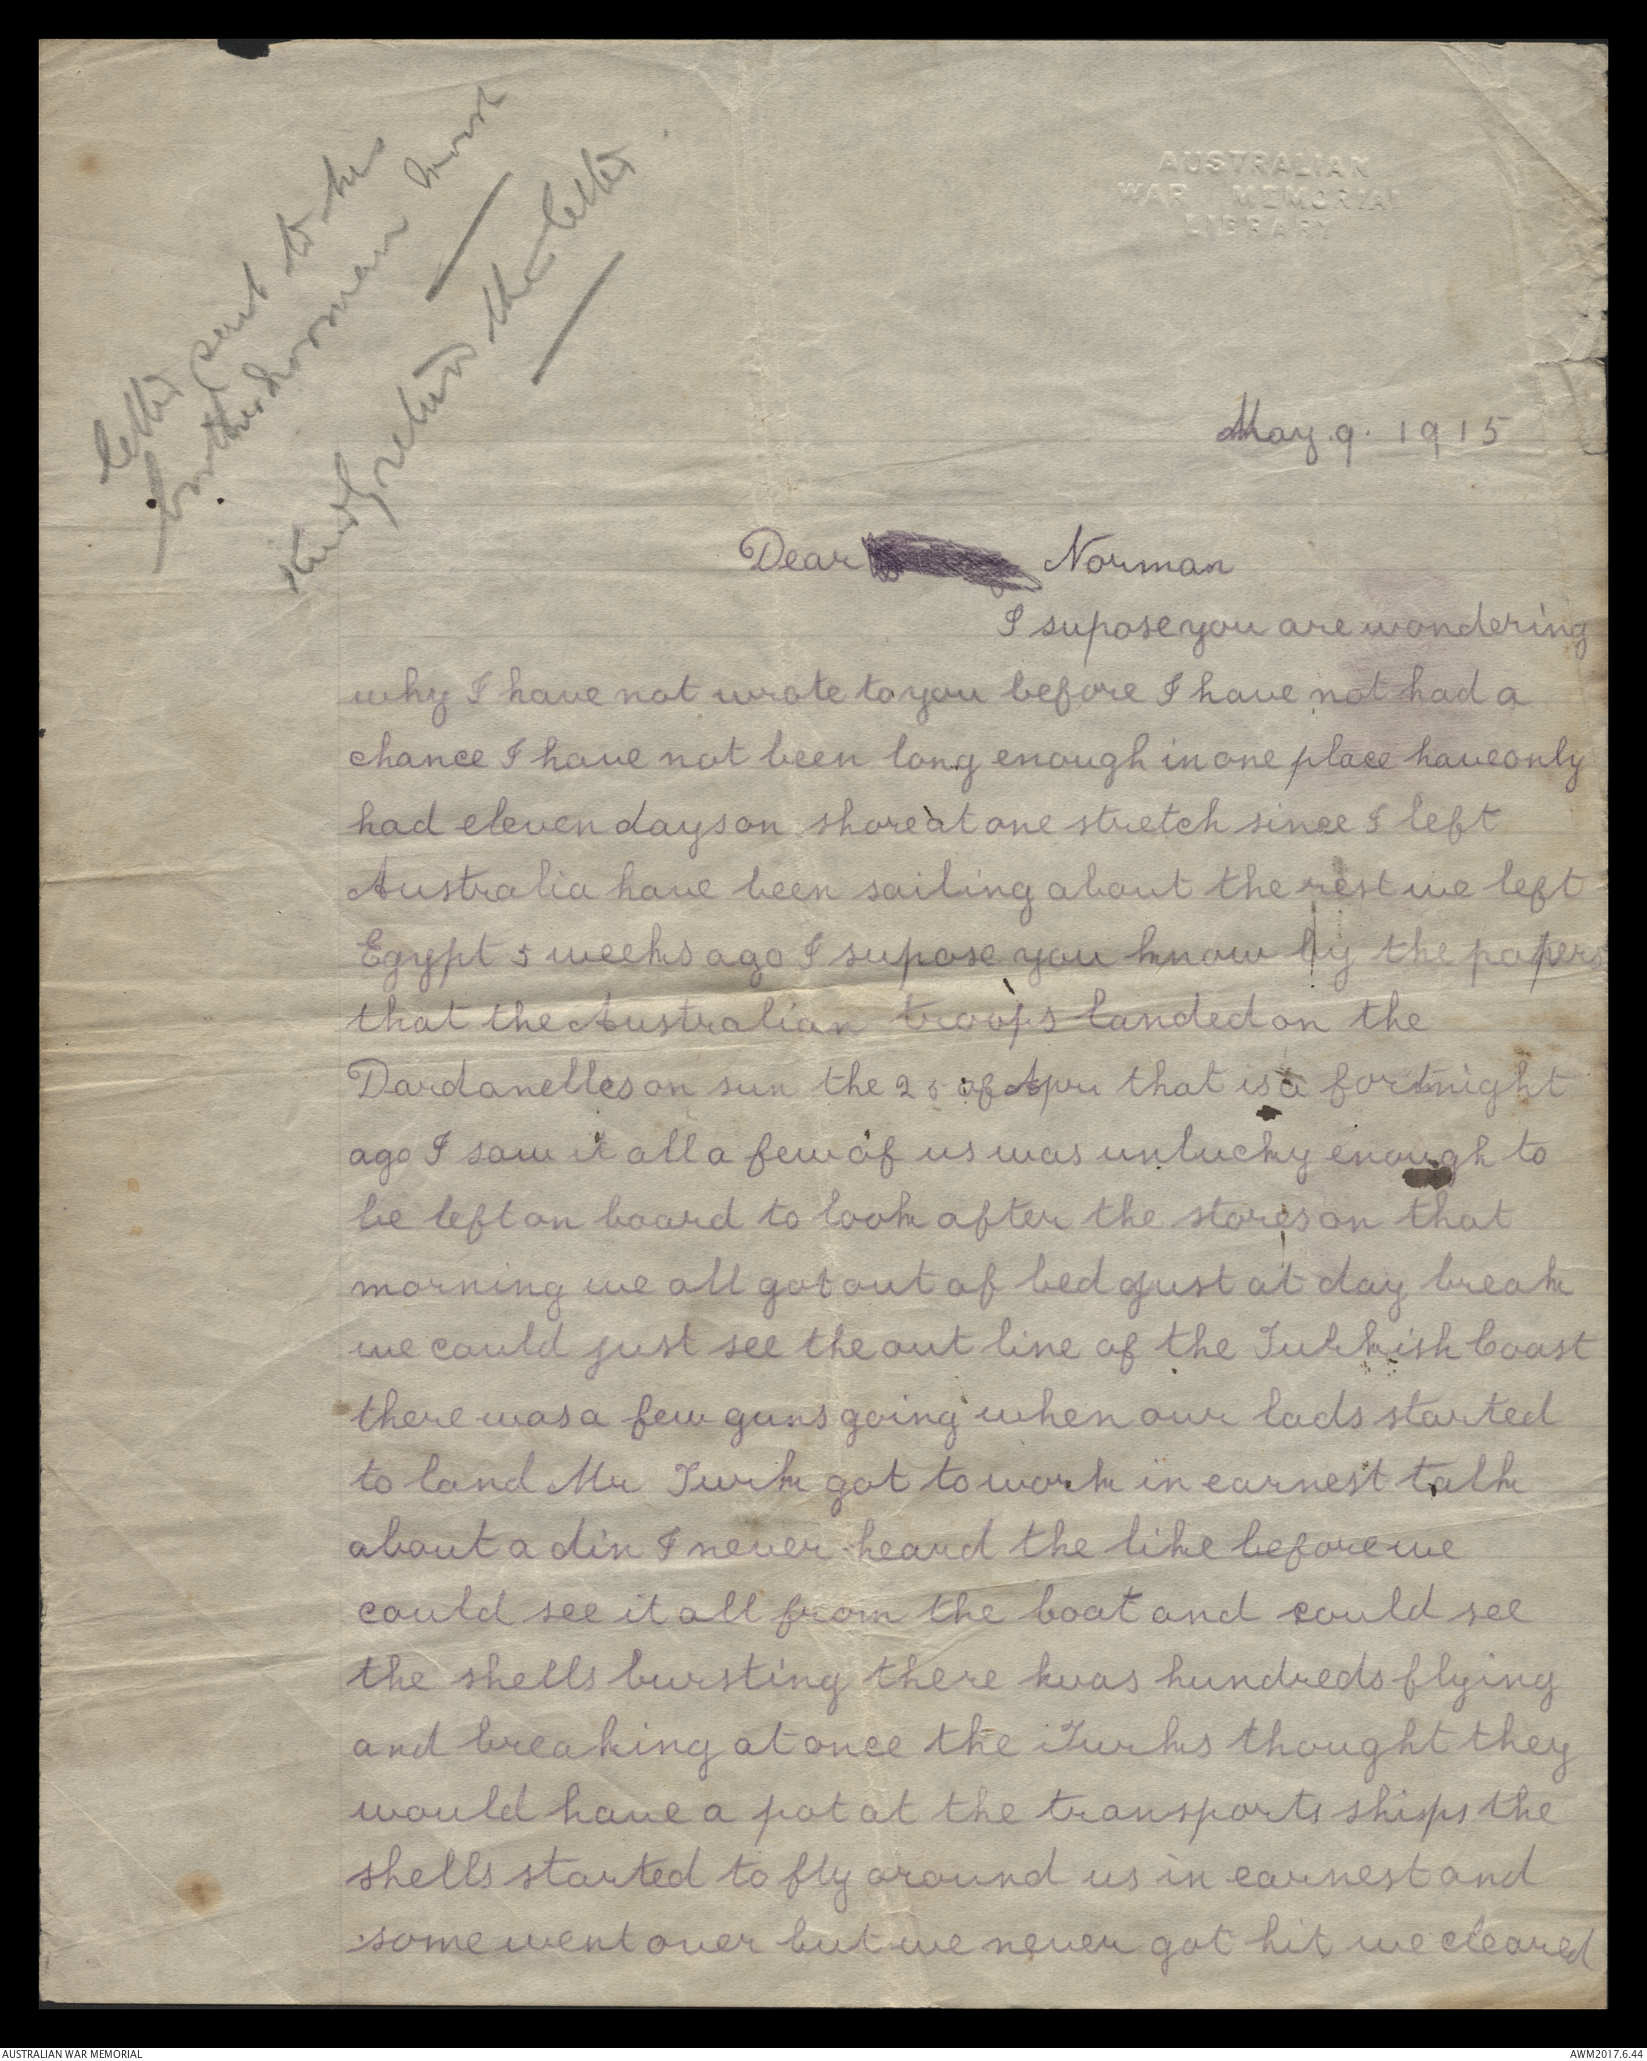 letter sent to his
brother Norman must
kindly return this letter
AUSTRALIAN
WAR MEMORIAL
LIBRARY
May. 9. 1915
Dear Norman
I supose you are wondering
why I have not wrote to you before I have not had a
chance I have not been long enough in one place have only
had eleven days on shore at one stretch since I left
Australia have been sailing about the rest we left
Egypt 5 weeks ago I supose you know by the papers
that the Australian troops landed on the
Dardanelles on sun the 25 of Apri that is a fortnight
ago I saw it all a few of us was unlucky enough to
be left on board to look after the stores on that
morning we all got out of bed just at day break
we could just see the out line of the Turkish Coast
there was a few guns going when our lads started
to land Mr Turk got to work in earnest talk
about a din I never heard the like before we
could see it all from the boat and could see
the shells bursting there was hundreds flying
and breaking at once the Turks thought they
would have a pot at the transports ships the
shells started to fly around us in earnest and
some went over but we never got hit we cleared
AUSTRALIAN WAR MEMORIAL
AWM2017.6.44